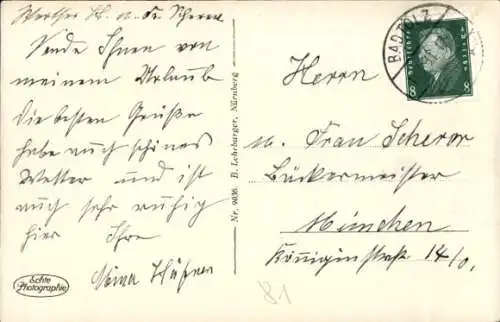 Werther H. u. Fr. Scherer
Sende Ihnen von
meinem Urlaub
die besten Grüße
habe auch schönes
Wetter und ist
auch sehr ruhig
hier Ihre
Echte
Photographie
Nr. 9836 B. Lehrburger, Nürnberg
BAD TÖLZ
DEUTSCHES REICH
8 8
Herrn
u. Frau Scherer
Bäckermeister
München
Königinstraße 14/0.
81